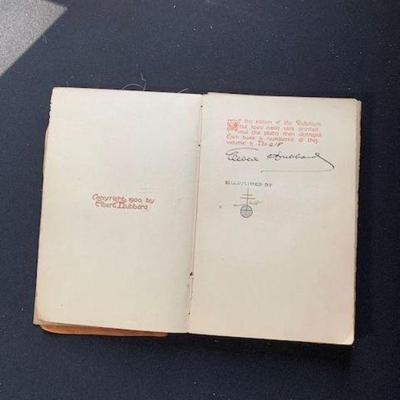 Copyright, 1900, by
Elbert Hubbard
Of this edition of the Rubaiyat
but 1000 copies were printed
and the plates then destroyed
Each book is numbered & this
volume is No 218
Elbert Hubbard
ILLUMINED BY